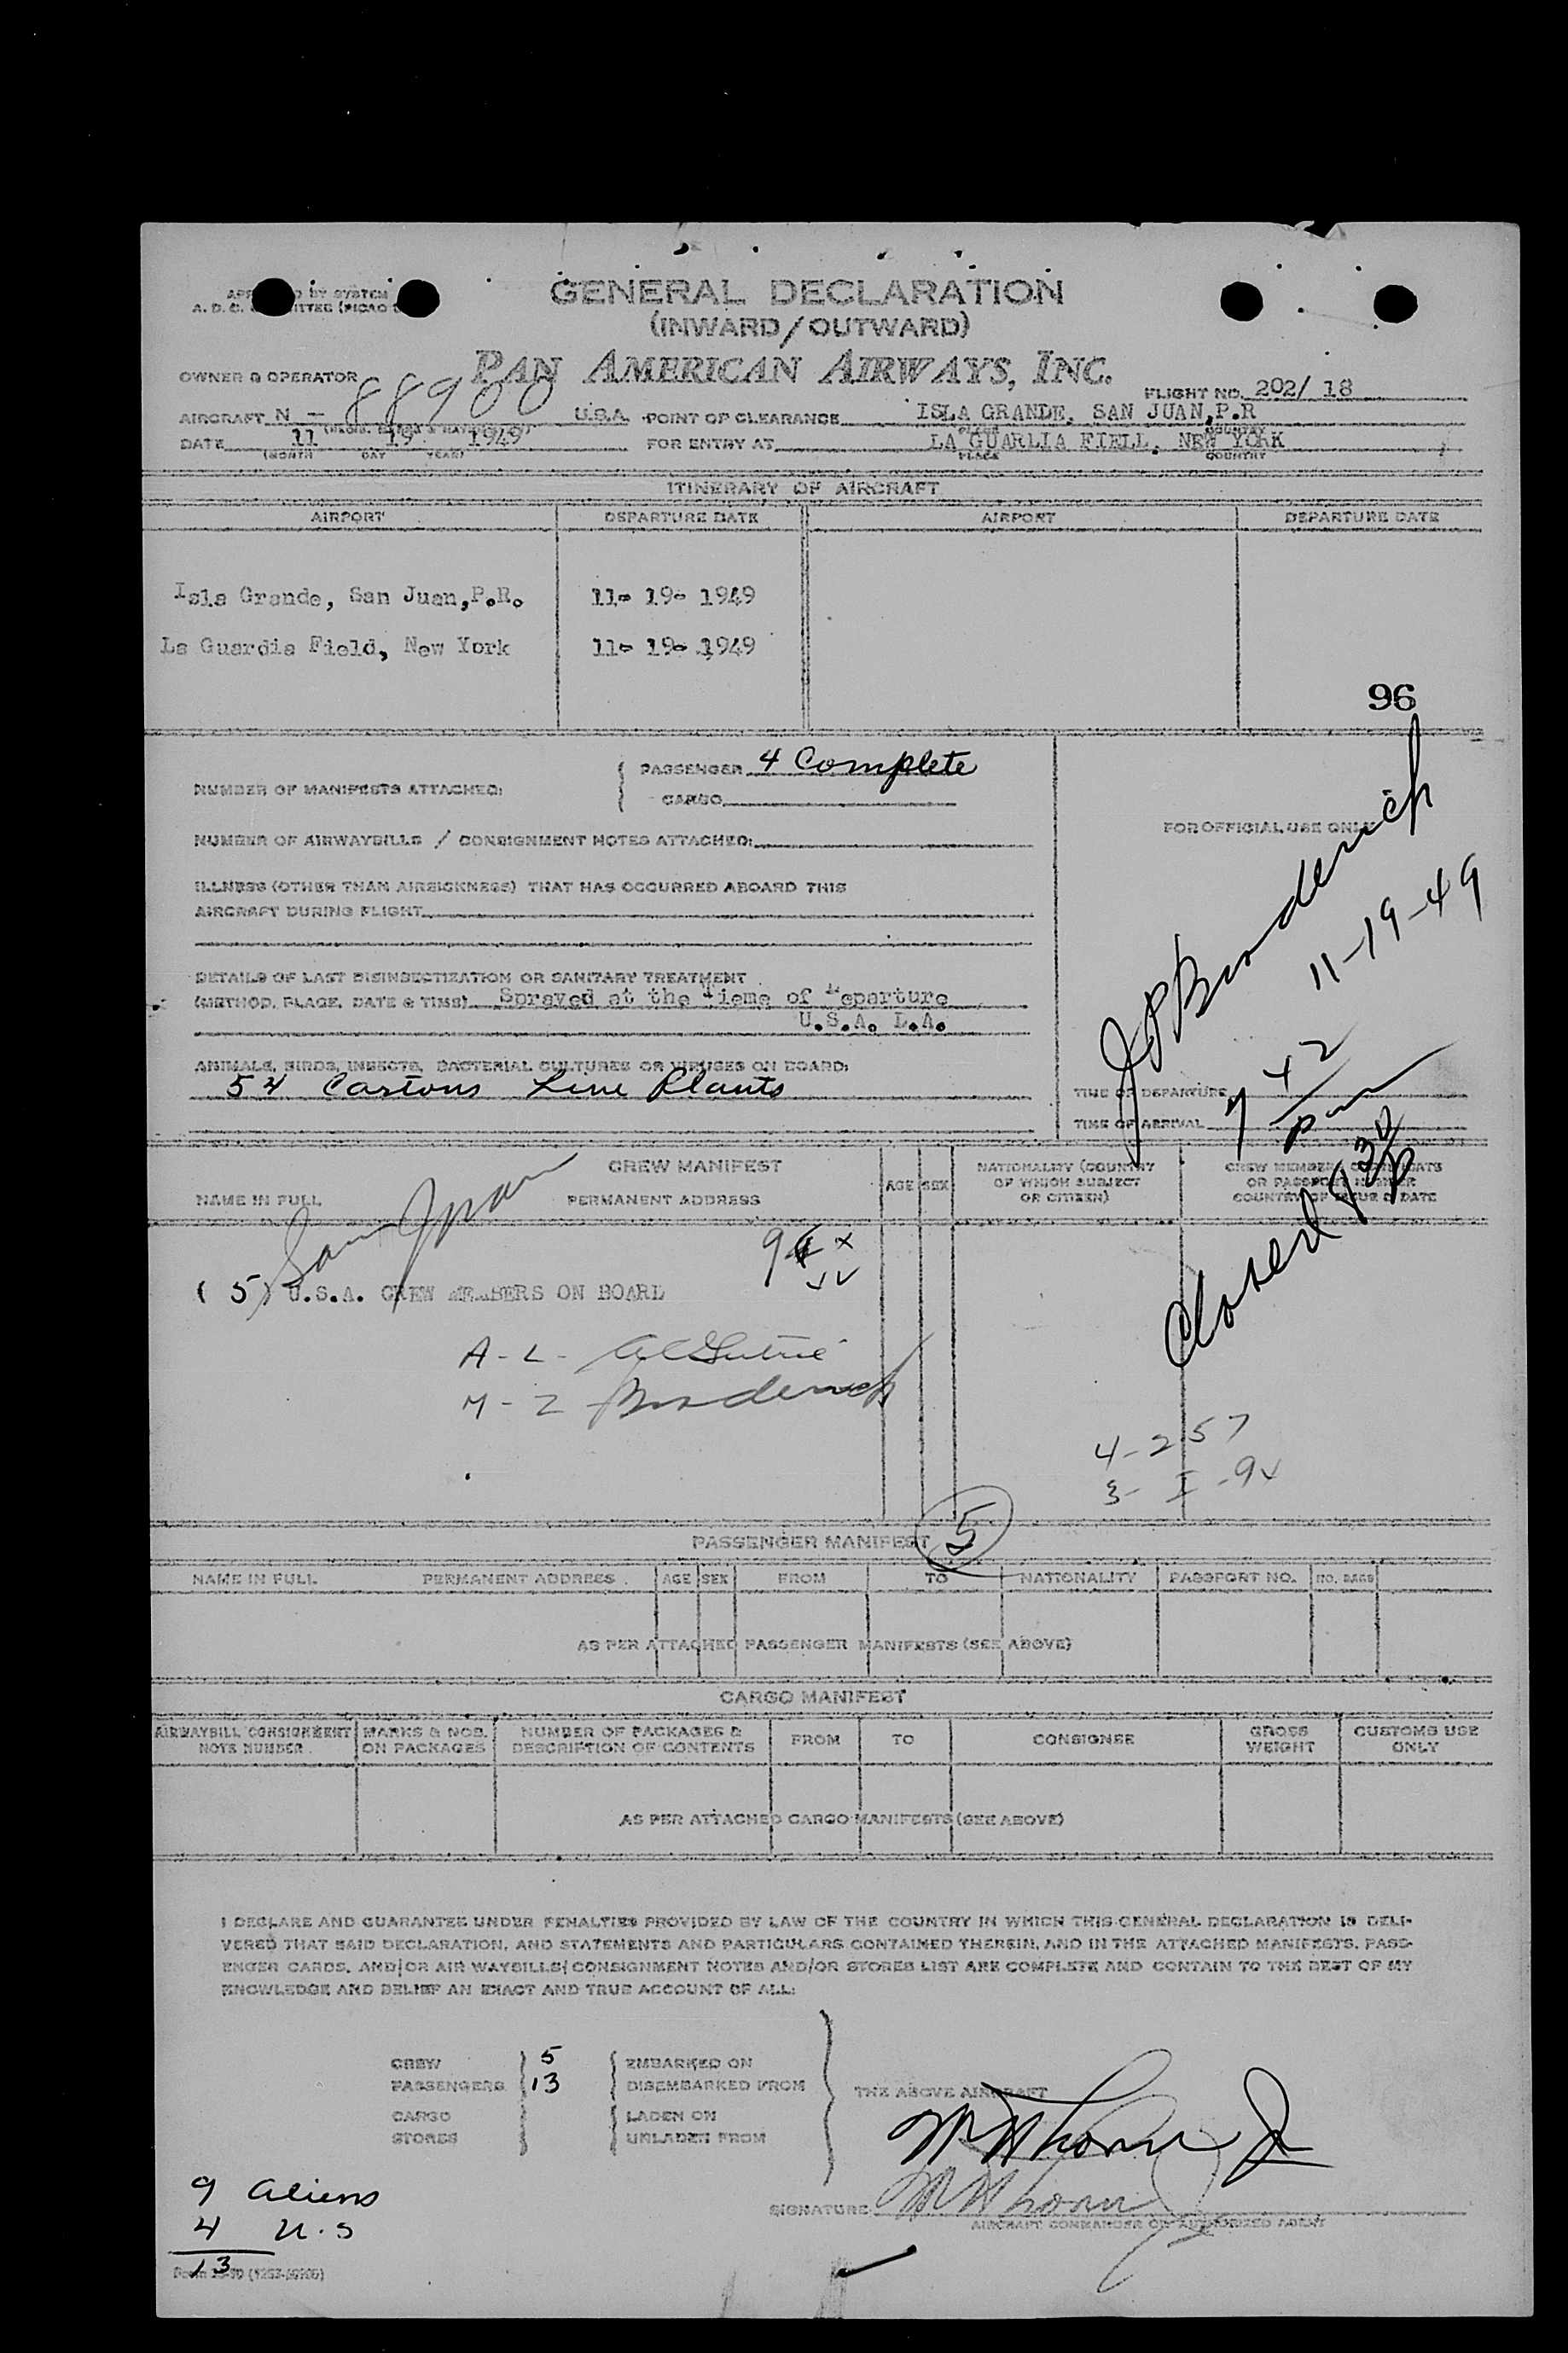 GENERAL DECLARATION
(INWARD/OUTWARD)
PAN AMERICAN AIRWAYS, INC.
OWNER & OPERATOR
FLIGHT NO. 202/ 18
AIRCRAFT N - 88900 U.S.A. POINT OF CLEARANCE ISLA GRANDE, SAN JUAN,P.R
DATE 11 19 1949 FOR ENTRY AT LA GUARLIA FIELL, NEW YORK
(MONTH DAY YEAR) PLACE COUNTRY
ITINERARY OF AIRCRAFT
AIRPORT DEPARTURE DATE AIRPORT DEPARTURE DATE
Isla Grande, San Juan,P.R. 11- 19- 1949
La Guardia Field, New York 11- 19- 1949
96
NUMBER OF MANIFESTS ATTACHED: PASSENGER 4 Complete
CARGO
FOR OFFICIAL USE ONLY
NUMBER OF AIRWAYBILLS / CONSIGNMENT NOTES ATTACHED:
ILLNESS (OTHER THAN AIRSICKNESS) THAT HAS OCCURRED ABOARD THIS
AIRCRAFT DURING FLIGHT
J P Broderick
11-19-49
DETAILS OF LAST DISINSECTIZATION OR SANITARY TREATMENT
(METHOD, PLACE, DATE & TIME) Sprayed at the Tieme of Departure
U.S.A. L.A.
ANIMALS, BIRDS, INSECTS, BACTERIAL CULTURES OR VIRUSES ON BOARD:
54 Cartons Live Plants
TIME OF DEPARTURE
TIME OF ARRIVAL
7 42 pm
Closed 9 30 P
CREW MANIFEST
NAME IN FULL PERMANENT ADDRESS AGE SEX NATIONALITY (COUNTRY OF WHICH SUBJECT OR CITIZEN) CREW MEMBERS CERTIFICATE OR PASSPORT NUMBER COUNTRY OF ISSUE & DATE
San Juan
(5) U.S.A. CREW MEMBERS ON BOARL
A-L-
M-Z Broderick
4-257
3- I -9
5
PASSENGER MANIFEST
NAME IN FULL PERMANENT ADDRESS AGE SEX FROM TO NATIONALITY PASSPORT NO. NO. BAGS
AS PER ATTACHED PASSENGER MANIFESTS (SEE ABOVE)
CARGO MANIFEST
AIRWAYBILL CONSIGNMENT NOTE NUMBER MARKS & NOS. ON PACKAGES NUMBER OF PACKAGES & DESCRIPTION OF CONTENTS FROM TO CONSIGNEE GROSS WEIGHT CUSTOMS USE ONLY
AS PER ATTACHED CARGO MANIFESTS (SEE ABOVE)
I DECLARE AND GUARANTEE UNDER PENALTIES PROVIDED BY LAW OF THE COUNTRY IN WHICH THIS GENERAL DECLARATION IS DELI-
VERED THAT SAID DECLARATION, AND STATEMENTS AND PARTICULARS CONTAINED THEREIN, AND IN THE ATTACHED MANIFESTS, PASS-
ENGER CARDS, AND/OR AIR WAYBILLS/ CONSIGNMENT NOTES AND/OR STORES LIST ARE COMPLETE AND CONTAIN TO THE BEST OF MY
KNOWLEDGE AND BELIEF AN EXACT AND TRUE ACCOUNT OF ALL:
CREW 5 EMBARKED ON
PASSENGERS 13 DISEMBARKED FROM THE ABOVE AIRCRAFT
CARGO LADEN ON
STORES UNLADEN FROM
SIGNATURE
AIRCRAFT COMMANDER OR AUTHORIZED AGENT
9 aliens
4 U.S
13